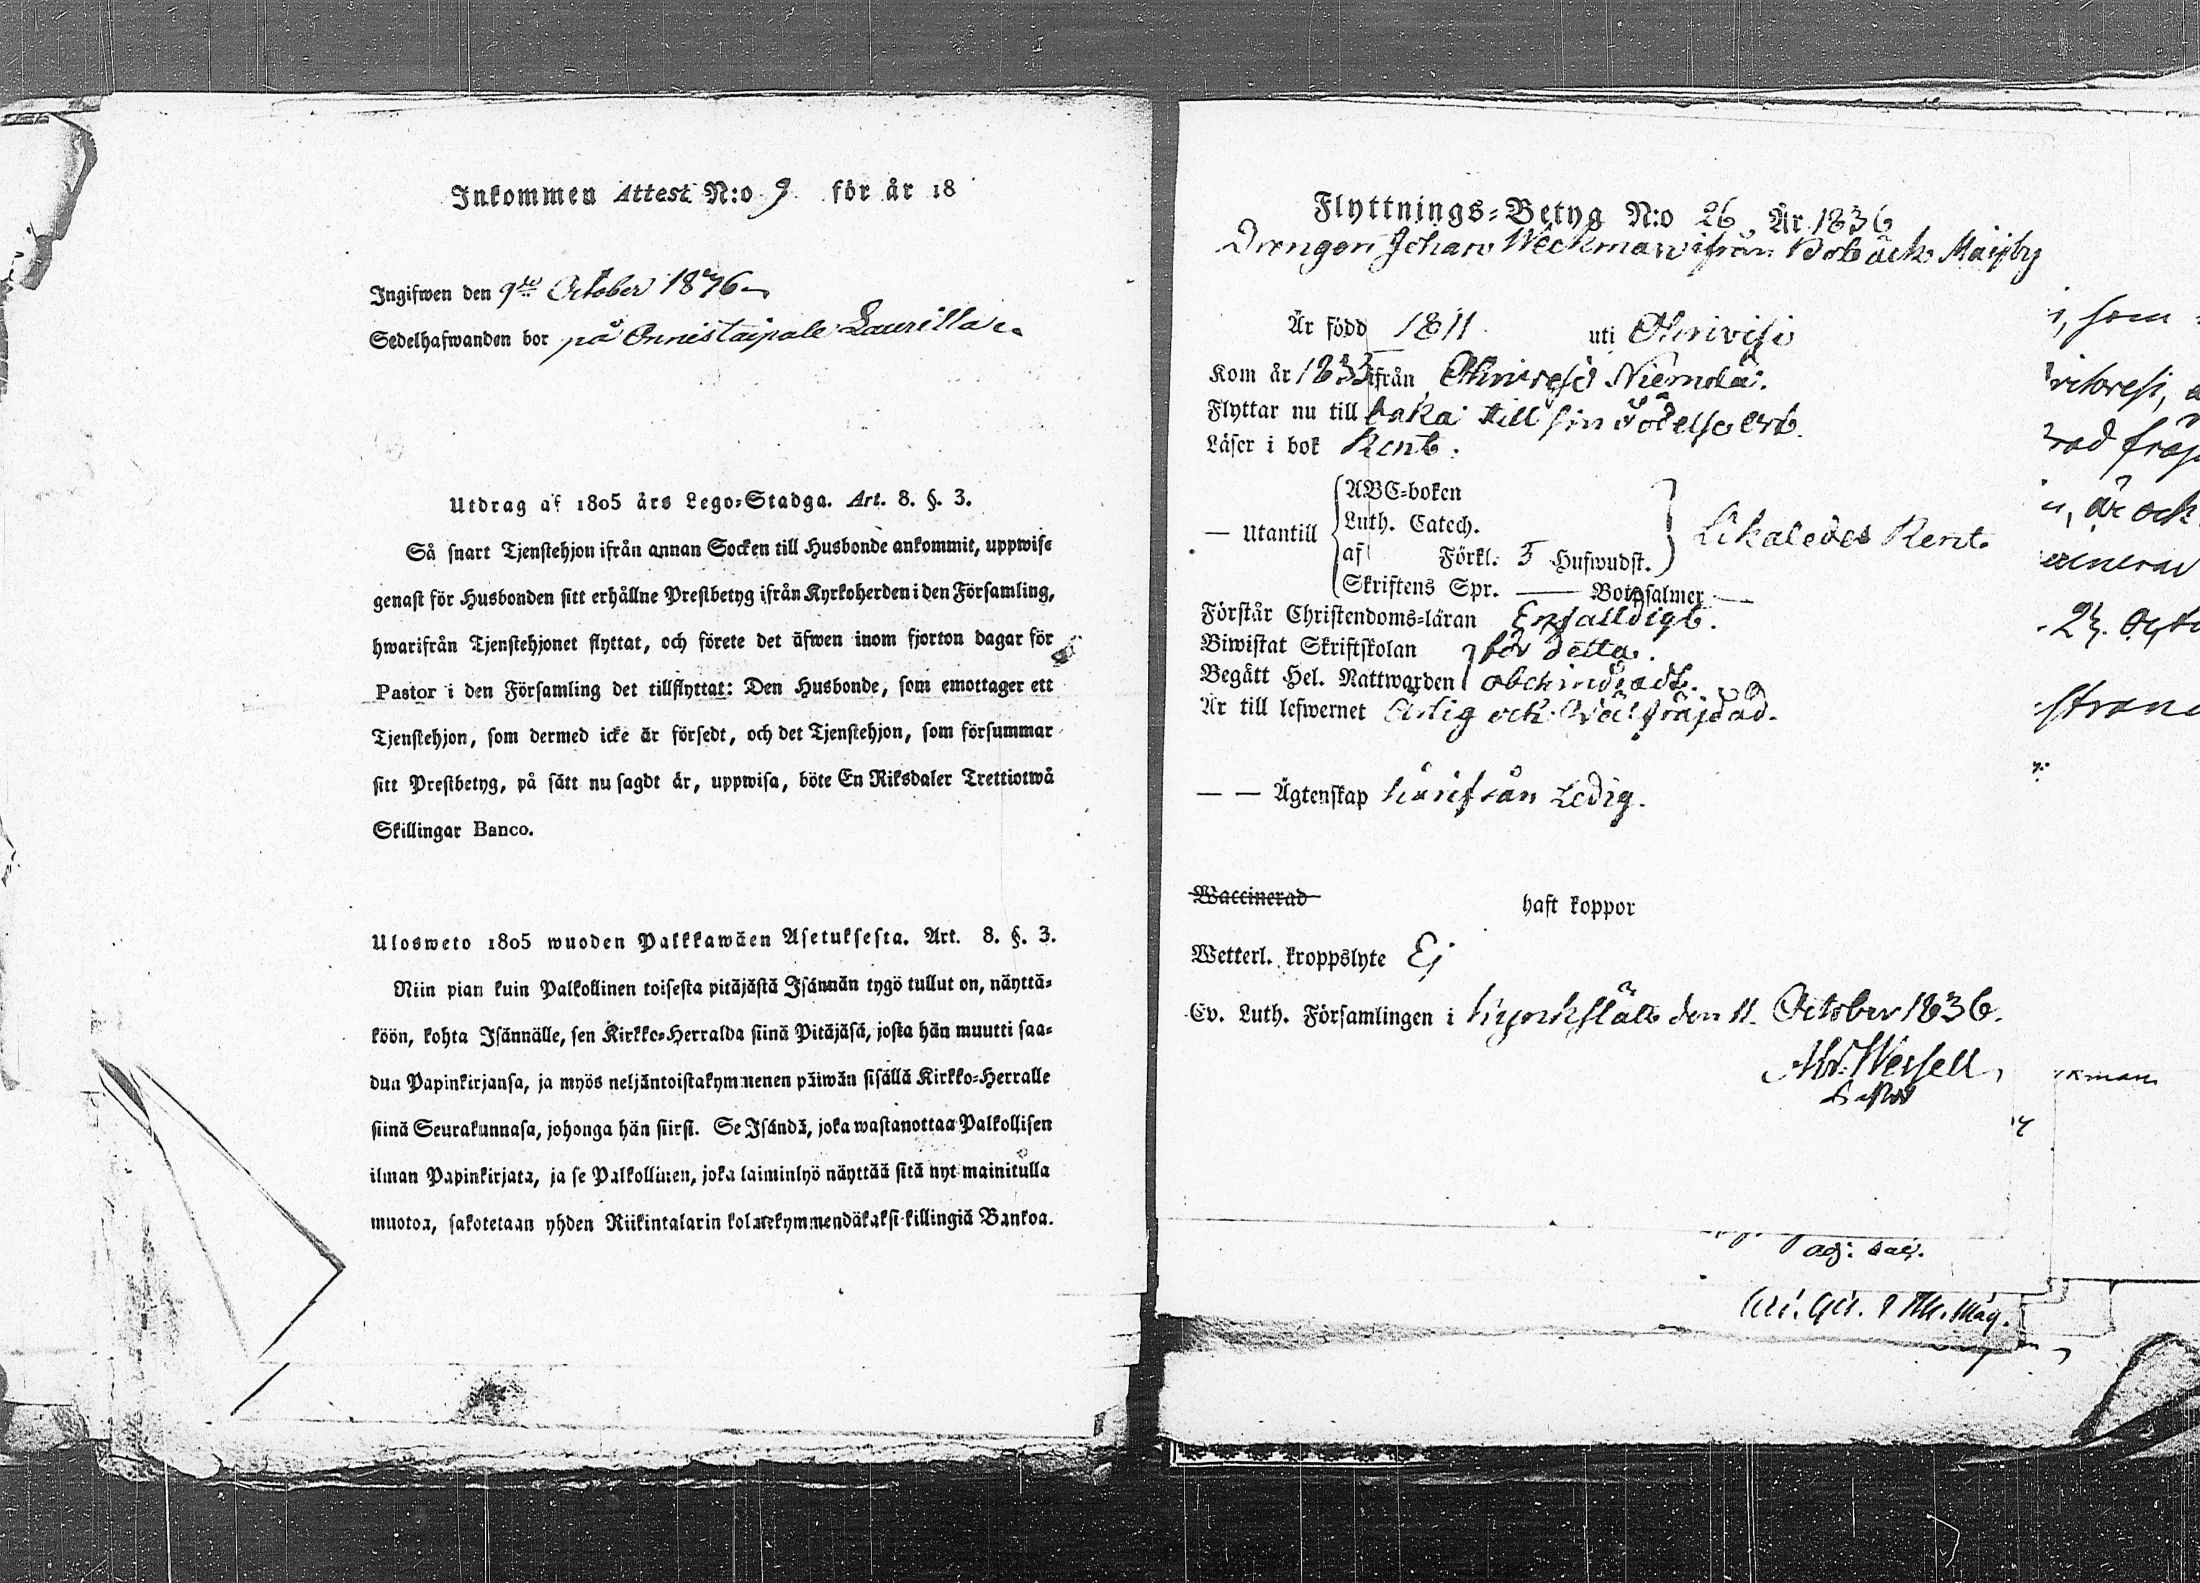 Inkommen Attest N:o 9 för år 18
Ingifwen den 9de October 1876
Sedelhafwanden bor på Onnistaipale Laurilla
Utdrag af 1805 års Lego-Stadga. Art. 8. §. 3.
Så snart Tjenstehjon ifrån annan Socken till Husbonde ankommit, uppwise
genast för Husbonden sitt erhållne Prestbetyg ifrån Kyrkoherden i den Församling,
hwarifrån Tjenstehjonet flyttat, och förete det äfwen inom fjorton dagar för
Pastor i den Församling det tillflyttat: Den Husbonde, som emottager ett
Tjenstehjon, som dermed icke är försedt, och det Tjenstehjon, som försummar
sitt Prestbetyg, på sätt nu sagdt är, uppwisa, böte En Riksdaler Trettiotwå
Skillingar Banco.
Ulosweto 1805 wuoden Palkkawäen Asetuksesta. Art. 8. §. 3.
Niin pian kuin Palkollinen toisesta pitäjästä Isännän tygö tullut on, näyttä-
köön, kohta Isännälle, sen Kirkko-Herralda siinä Pitäjäsä, josta hän muutti saa-
dun Papinkirjansa, ja myös neljäntoistakymmenen päiwän sisällä Kirkko-Herralle
siinä Seurakunnasa, johonga hän siirsi. Se Isändä, joka wastanottaa Palkollisen
ilman Papinkirjata, ja se Palkollinen, joka laiminlyö näyttää sitä nyt mainitulla
muotoa, sakotetaan yhden Riikintalarin kolmekymmendäkaksi killingiä Bankoa.
Flyttnings-Betyg N:o 26 År 1836
Drengen Johan Weckman ifrån Bobäck Majby
Är född 1811 uti
Kom år 1833 ifrån Niemelä.
Flyttar nu till baka till sin födelse ort.
Läser i bok Rent.
— Utantill
ABC-boken
Luth. Catech.
af Förkl. 5 Hufwudst.
Likaledes Rent.
Skriftens Spr. — Botpsalmer —
Förstår Christendoms-läran Enfalldigt.
Biwistat Skriftskolan för detta.
Begått Hel. Nattwarden obehindradt.
Är till lefwernet Ärlig och Wäl fräjdad.
— — Ägtenskap härifrån Ledig.
Waccinerad haft koppor
Wetterl. kroppslyte Ej
Ev. Luth. Församlingen i Kyrkslätt den 11. October 1836.
som
är och